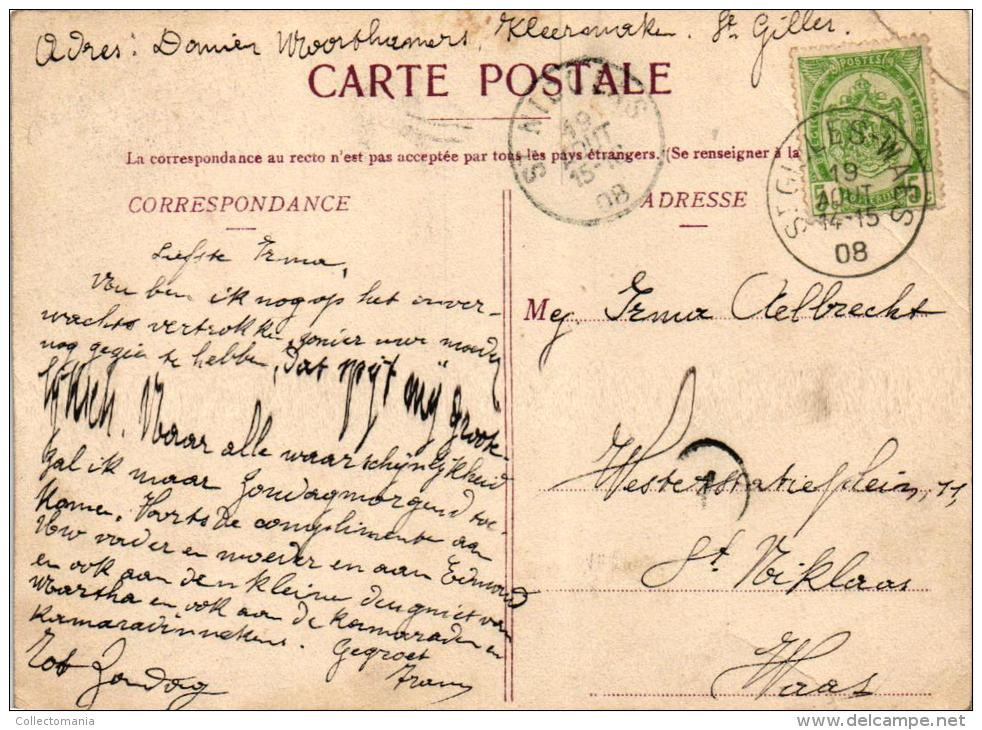 Adres: Damien Moorthamers, Kleermaker. St Gilles.
CARTE POSTALE
La correspondance au recto n'est pas acceptée par tous les pays étrangers. (Se renseigner à la
CORRESPONDANCE
ADRESSE
POSTES
5 5
ST GILLES-WAES
19
AOUT
14-15
08
ST NICOLAS
19
AOUT
15-
08
Liefste Irma,
ben ik nog op het onver-
wachts vertrokken, zonder uwe moeder
nog gezien te hebben, dat spijt mij groote-
lijks. Maar alle waarschijnlijkheid
zal ik maar Zondagmorgend toe-
komen. Voorts de complimenten aan
Uw vader en moeder en aan Edmond
en ook aan den kleine deugniet van
Martha en ook aan de kamaraden en
kamaradinnekens. Gegroet
Tot Zondag Frans
Mej. Irma Aelbrecht
Westerstatieplein, 11
1
St Niklaas
Waas
Collectomania
www.delcampe.net